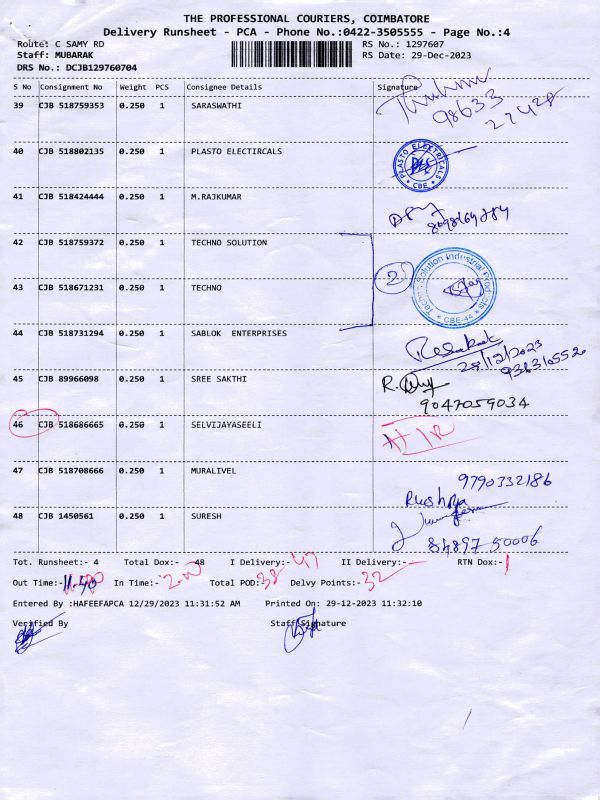 THE PROFESSIONAL COURIERS, COIMBATORE
Delivery Runsheet - PCA - Phone No.:0422-3505555 - Page No.:4
Route: C SAMY RD RS No.: 1297607
Staff: MUBARAK RS Date: 29-Dec-2023
DRS No.: DCJB129760704
S No Consignment No Weight PCS Consignee Details Signature
39 CJB 518759353 0.250 1 SARASWATHI
98633
27428
40 CJB 518802135 0.250 1 PLASTO ELECTIRCALS
PLASTO ELEXTRICALS
* CBE *
41 CJB 518424444 0.250 1 M.RAJKUMAR
42 CJB 518759372 0.250 1 TECHNO SOLUTION
2
Techno Solution Industrial Products
* CBE-44 *
43 CJB 518671231 0.250 1 TECHNO
44 CJB 518731294 0.250 1 SABLOK ENTERPRISES
29/12/2023
45 CJB 89966098 0.250 1 SREE SAKTHI
9047059034
46 CJB 518686665 0.250 1 SELVIJAYASEELI
47 CJB 518708666 0.250 1 MURALIVEL
9790332186
48 CJB 1450561 0.250 1 SURESH
84897-50006
Tot. Runsheet:- 4 Total Dox:- 48 I Delivery:- 47 II Delivery:- - RTN Dox:- 1
Out Time:- 11.40 In Time:- 2.00 Total POD:- 38 Delvy Points:- 32
Entered By :HAFEEFAPCA 12/29/2023 11:31:52 AM Printed On: 29-12-2023 11:32:10
Verified By Staff Signature